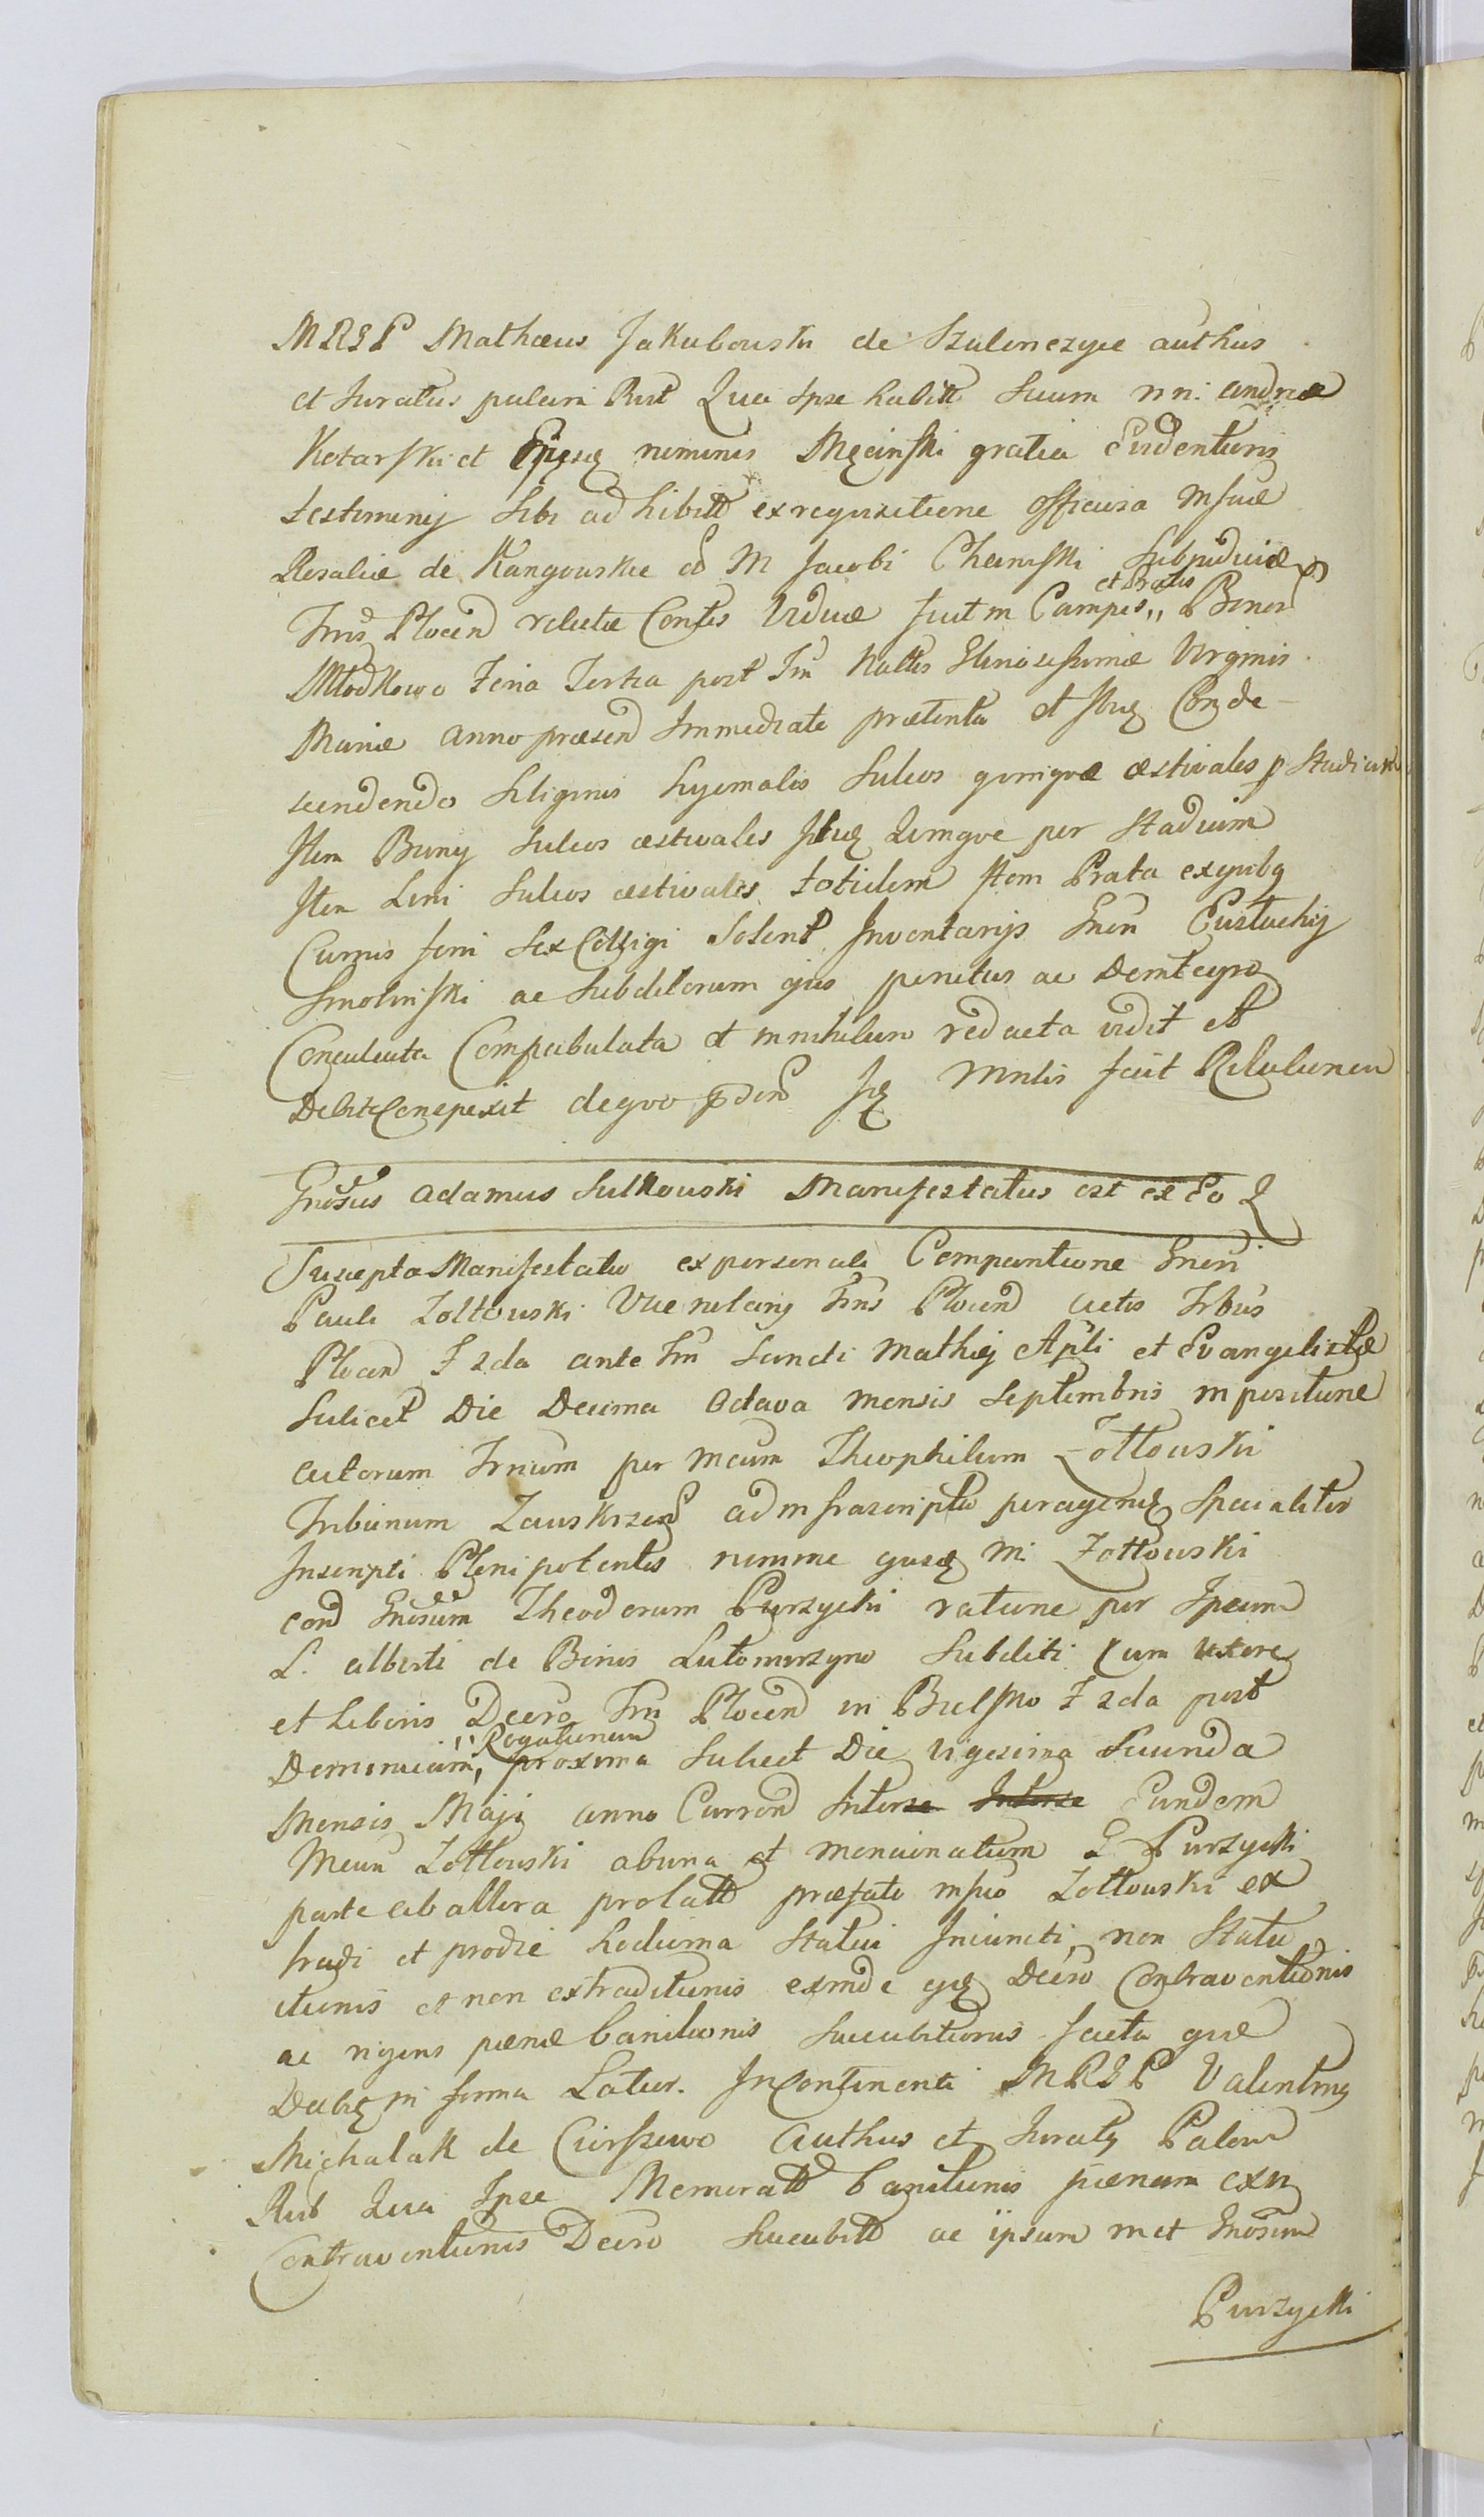 MRGP Mathæus Jakubouski de Szulenczyce authus
et Juratus palam Rut Qua ipse habitt secum nn. andreæ
Kotarski et nominis Męcinski gratia Evidentioris
testimonij sibi adhibitt ex requisitione officiosa Msicæ
Rosaliæ de Kangouskie M Jacobi Chamski Subjudicis
Trris Plocen relictæ Contis Viduæ fuit in Campis et Pratis Bonor
Młodkowo Feria Tertia post Fm Nattis Gloriosissimæ Virginis
Mariæ anno præsen Immediate præterita et Ibiq Conde-
scendendo Siliginis hyemalis Sulcos quinque æstivales p Stadium
Item sulcos æstivales quinque per Stadium
Item Lini Sulcos æstivales totidem Item Prata ex quibq
Currus feni sex Colligi solent Inventarijs Gnen Eustachij
Smolinski ac subditorum ejus penitus ac Deintegro
Conculcata Compabulata et in nihilum redacta vidit et
Debite Conspexit de quo Mnlis fecit Relationem
Gnosus Adamus Sulkouski Manifestatus est ex Eo Q
Suscepta Manifestatio ex personali Comparitione Gnen
Pauli Zoltouski Vicerelarij Trris Plocen actis Trbus
Plocen F 2da ante Fm Sancti Mathæj Apli et Evangelistæ
Scilicet Die Decima Octava mensis Septembris in positione
actorum Trrium per Mcum Theophilum Zottouski
Tribunum Zauskrzen ad infrascripta peragend specialiter
Inscripti Plenipotentis nomine Mi Zottouski
con Gnosum Theodorum Purzycki ratione per Ipsum
L. alberti de Bonis Lutomirzyno Subditi cum Uxore
et Liberis Decro Trri Plocen in Bielsko F 2da post
Dominicam Rogationum proxima Scilicet Die vigesima secunda
Mensis Maji anno Curren Inter Eundem
Mcum Zottouski ab una et mencinatum G Purzycki
parte ab altera prolatt præfato Msico Zottouski ex
tradi et prodie hodierna Statui Iniuncti non Statu
itionis et non extraditionis exinde Decro Contraventionis
ac rigens pænæ banitionis Succubitionis facta quæ
in forma Latior. Incontinenti MRGP Valentinus
Michalak de Ciorszewo Authus et Juratq Palam
Rut Qua Ipse Memoratt banitionis pænam ex
Contraventionis Decro Sucubitt ac ipsum met Gnosum
Purzycki